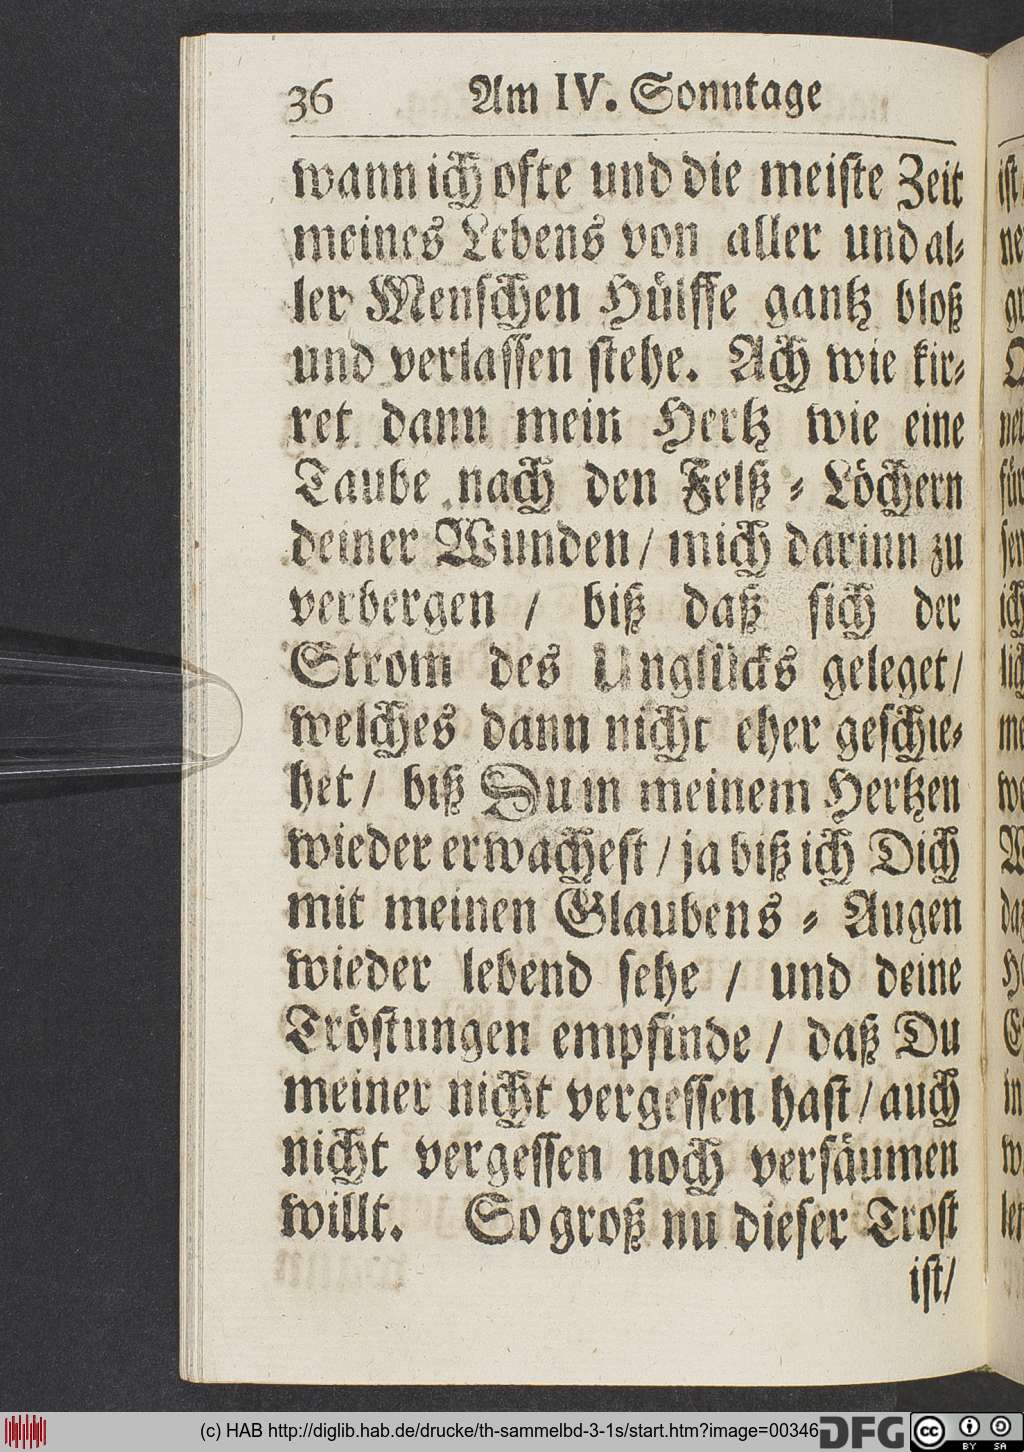 36 Am IV. Sonntage
wann ich ofte und die meiſte Zeit
meines Lebens von aller und al⸗
ler Menſchen Hülffe gantz bloß
und verlaſſen ſtehe. Ach wie kir⸗
ret dann mein Hertz wie eine
Taube nach den Felß⸗Löchern
deiner Wunden / mich darinn zu
verbergen / biß daß ſich der
Strom des Unglücks geleget /
welches dann nicht eher geſchie⸗
het / biß Du in meinem Hertzen
wieder erwacheſt / ja biß ich Dich
mit meinen Glaubens⸗Augen
wieder lebend ſehe / und deine
Tröſtungen empfinde / daß Du
meiner nicht vergeſſen haſt / auch
nicht vergeſſen noch verſäumen
willt. So groß nu dieſer Troſt
iſt /
(c) HAB http://diglib.hab.de/drucke/th-sammelbd-3-1s/start.htm?image=00346 DFG CC BY SA